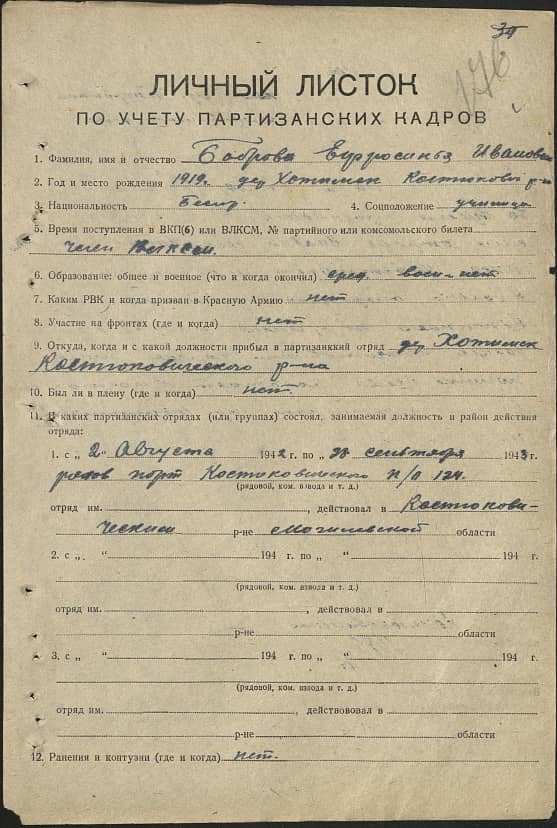 34
176
ЛИЧНЫЙ ЛИСТОК
ПО УЧЕТУ ПАРТИЗАНСКИХ КАДРОВ
1. Фамилия, имя и отчество Боброва Ефросинья Ивановна
2. Год и место рождения 1919г. дер Хотимск Костюкович р-на
3. Национальность белор. 4. Соцположение учащаяся
5. Время поступления в ВКП(б) или ВЛКСМ, № партийного или комсомольского билета
член ВЛКСМ.
6. Образование: общее и военное (что и когда окончил) сред. воен-нет
7. Каким РВК и когда призван в Красную Армию нет
8. Участие на фронтах (где и когда) нет
9. Откуда, когда и с какой должности прибыл в партизанккий отряд дер Хотимск
Костюковического р-на
10. Был ли в плену (где и когда) нет.
11. В каких партизанских отрядах (или группах) состоял, занимаемая должность и район действия
отряда:
1. с „ 2 “ Августа 1942 г. по „ 28 сентября 1943 г.
рядов парт Костюковичского п/о 124.
(рядовой, ком. взвода и т. д.)
отряд им. , действовал в Костюкови-
ческом р-не Могилевской области
2. с „ “ 194 г. по „ “ 194 г.
(рядовой, ком. взвода и т. д.)
отряд им. , действовал в
р-не области
3. с „ “ 194 г. по „ “ 194 г.
(рядовой, ком. взвода и т. д.)
отряд им. , действововал в
р-не области
12. Ранения и контузии (где и когда) нет.